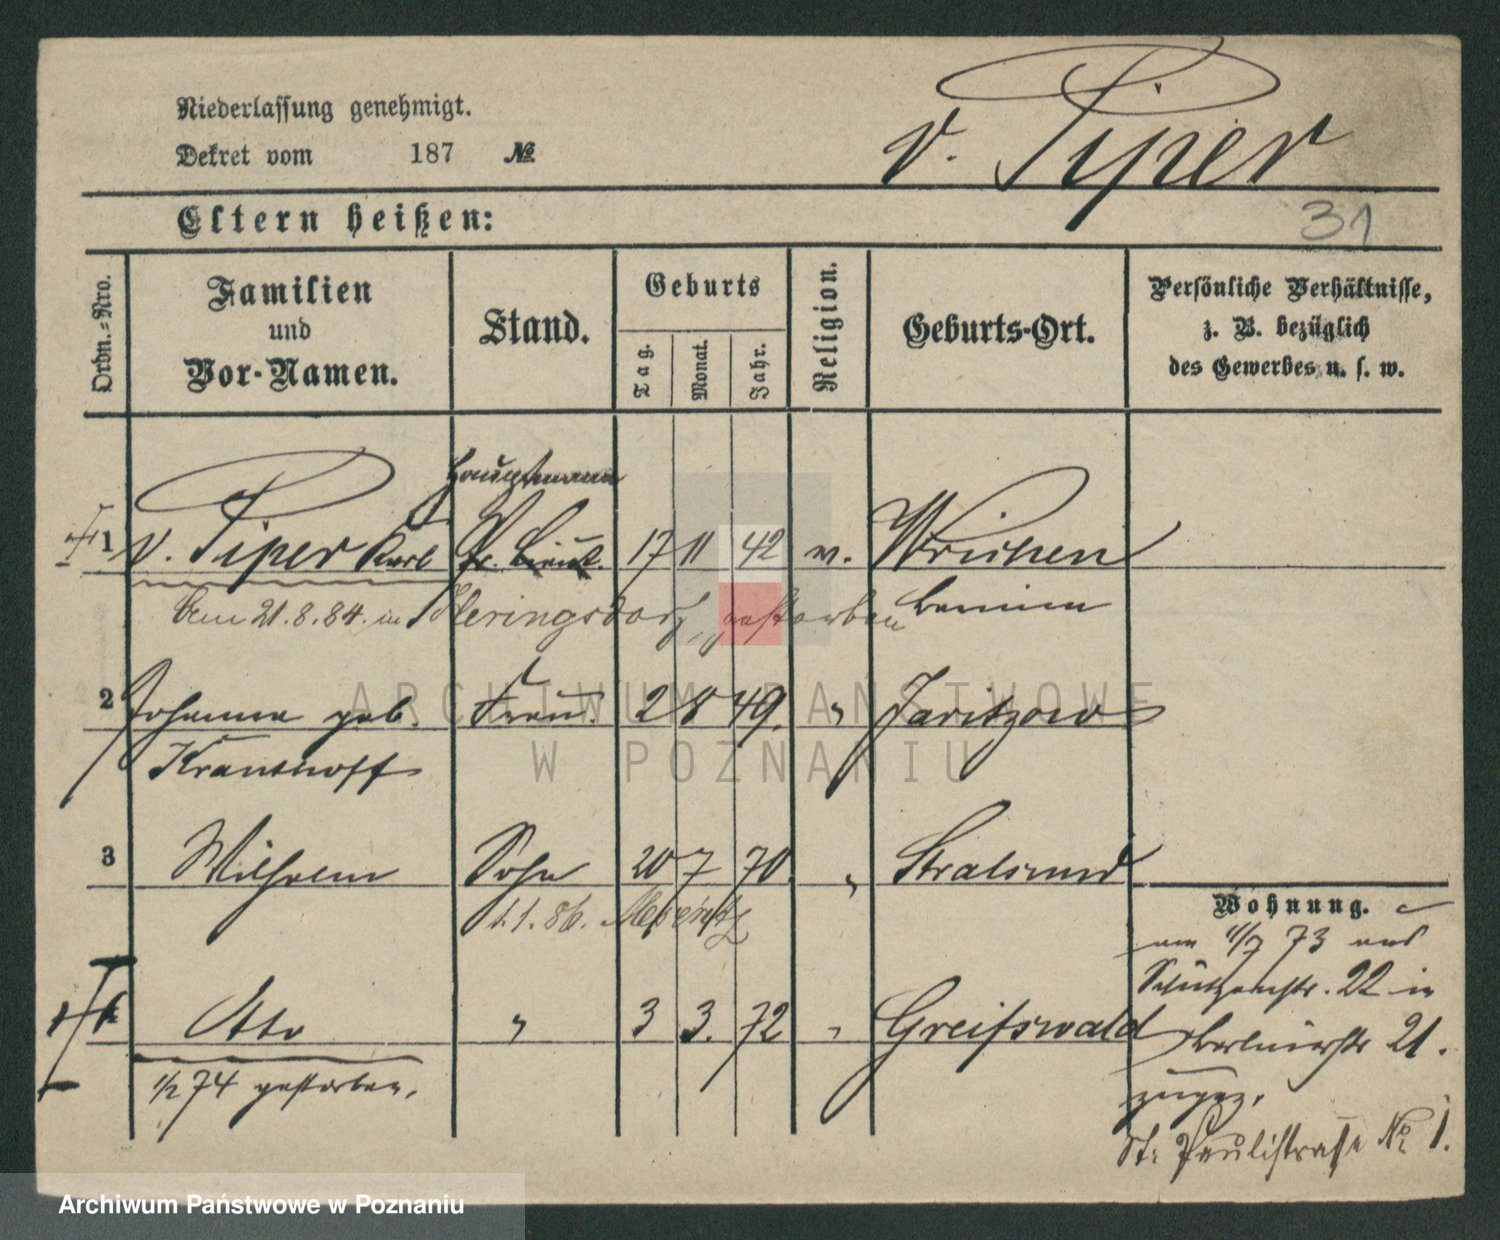 Niederlassung genehmigt.
Dekret vom 187 №
v. Piper
31
Eltern heißen:
Ordn.-Nro.
Familien
und
Vor-Namen.
Stand.
Geburts
Tag.
Monat.
Jahr.
Religion.
Geburts-Ort.
Persönliche Verhältnisse,
z. B. bezüglich
des Gewerbes u. s. w.
Hauptmann
1 v. Piper Karl Pr. Lieut. 17 11 42 Wriezen
Am 21.8.84. in Heringsdorf gestorben
2 Johanna geb. Frau. 2 8 49. " Jaritzow
Kranthoff
3 Wilhelm Sohn 20 7 70. " Stralsund
1.1.86. Meseritz
Otto " 3 3. 72 " Greifswald
1/2 74 gestorben.
Wohnung.
am 1/7 73 aus
Schützenstr. 22 in
21.
zugez.
St. Paulistrasse No 1.
ARCHIWUM PAŃSTWOWE
W POZNANIU
Archiwum Państwowe w Poznaniu